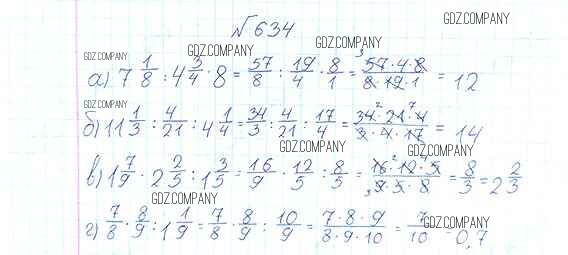 № 634
GDZ.COMPANY
GDZ.COMPANY GDZ.COMPANY GDZ.COMPANY
а) 7 1/8 : 4 3/4 · 8 = 57/8 : 19/4 · 8/1 = 57·4·8/8·19·1 = 12
3
GDZ.COMPANY
б) 11 1/3 : 4/21 : 4 1/4 = 34/3 : 4/21 : 17/4 = 34·21·4/3·4·17 = 14
2 7
GDZ.COMPANY GDZ.COMPANY
в) 1 7/9 · 2 2/5 : 1 3/5 = 16/9 · 12/5 : 8/5 = 16·12·5/9·5·8 = 8/3 = 2 2/3
2 4
3
GDZ.COMPANY
г) 7/8 · 8/9 : 1 1/9 = 7/8 · 8/9 : 10/9 = 7·8·9/8·9·10 = 7/10 = 0,7
GDZ.COMPANY